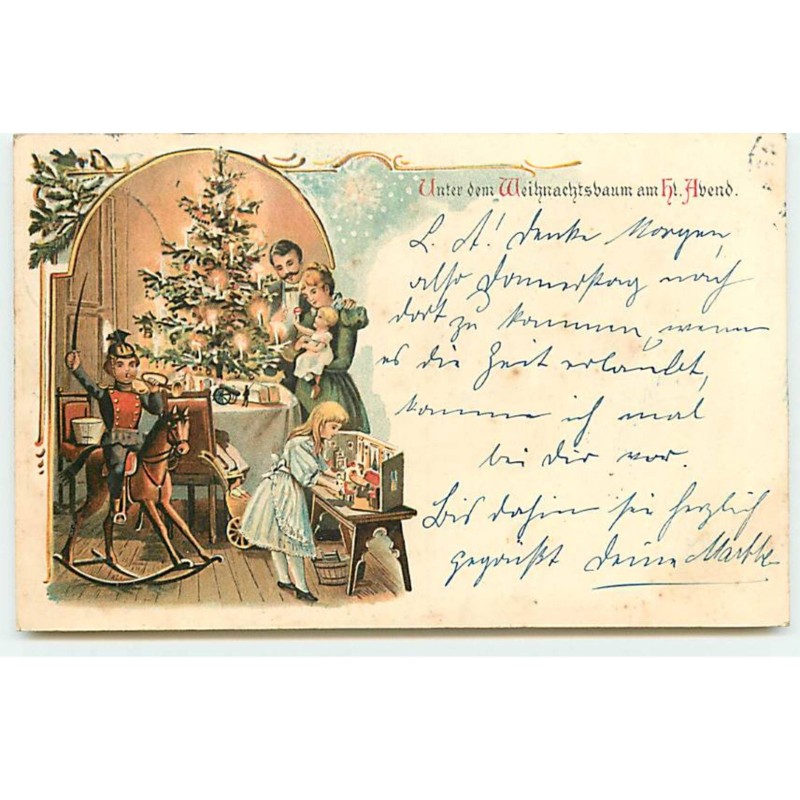 Unter dem Weihnachtsbaum am Hl. Abend.
L. A! Denke Morgen,
also Donnerstag nach
dort zu kommen, wenn
es die Zeit erlaubt,
komme ich mal
bei Dir vor.
Bis dahin sei herzlich
gegrüßt Deine Marthe